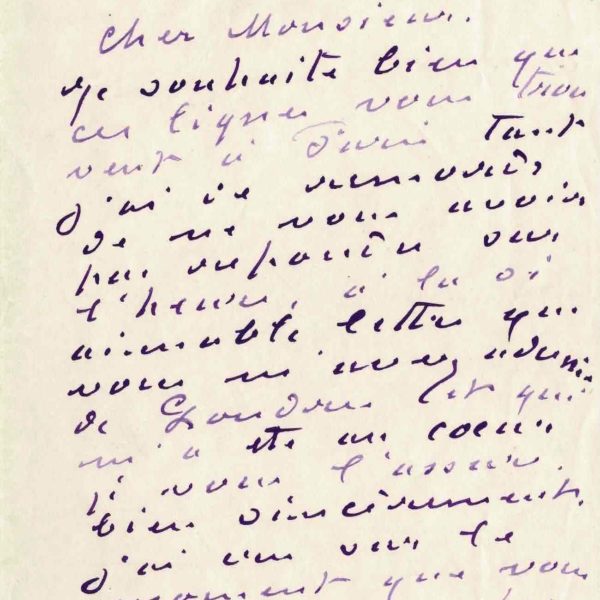 Cher Monsieur.
Je souhaite bien que
ces lignes vous trou
vent à Paris tant
j'ai de remords
de ne vous avoir
pas répondu sur
l'heure, à la si
aimable lettre que
vous m'avez adressée
de Londres (et qui
m'a été au cœur
je vous l'assure
bien sincèrement.
j'ai cru sur le
moment que vous